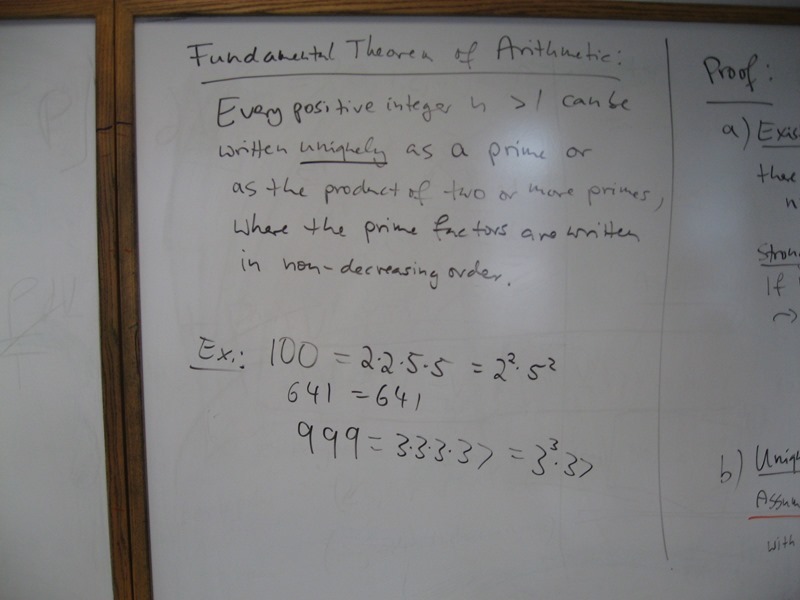 Fundamental Theorem of Arithmetic:
Every positive integer n > 1 can be
written uniquely as a prime or
as the product of two or more primes,
where the prime factors are written
in non-decreasing order.
Ex.: 100 = 2·2·5·5 = 2²·5²
641 = 641
999 = 3·3·3·37 = 3³·37
Proof:
a) Exis
there
n
Strong
If
b) Uniq
Assum
with